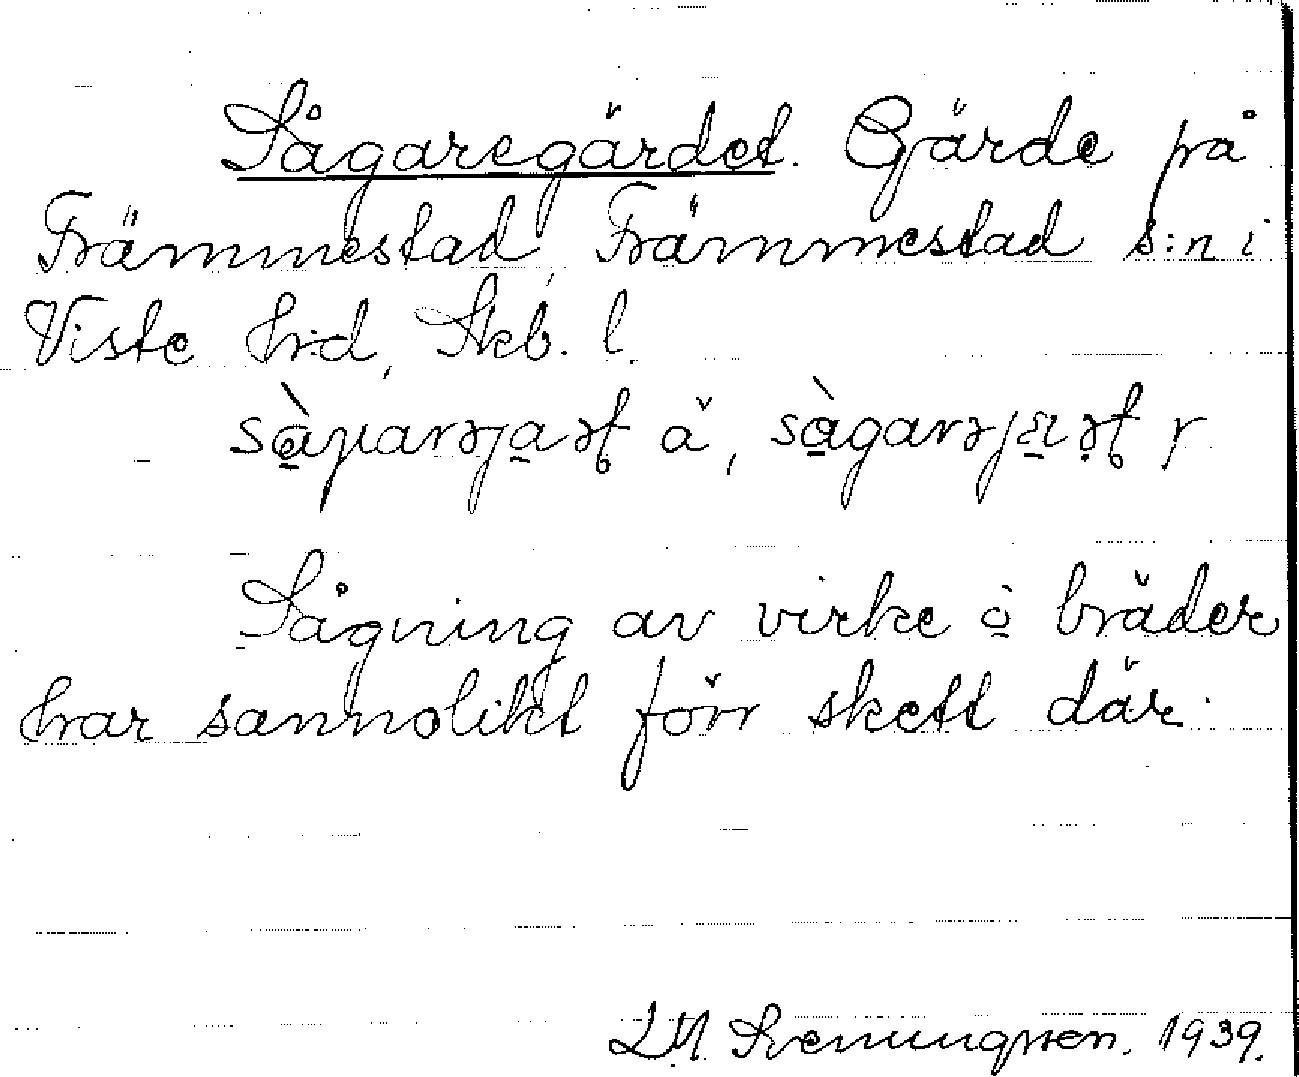 Sågaregärdet. Gärde på
Främmestad, Främmestad s:n i
Viste hrd, Skb. l.
ä,
Sågning av virke o̲ bräder
har sannolikt förr skett där.
D.M. Svenungsson. 1939.